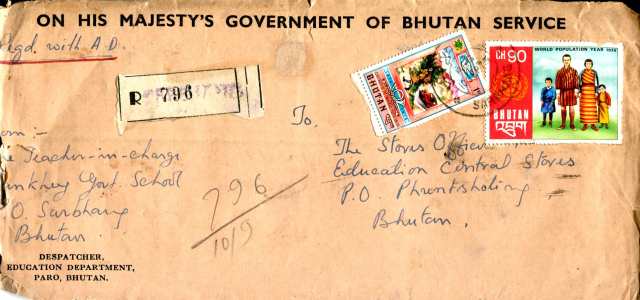 ON HIS MAJESTY'S GOVERNMENT OF BHUTAN SERVICE
Regd. with A.D.
R 796
BHUTAN
WORLD POPULATION YEAR 1974
90 CH
BHUTAN
འབྲུག
To,
The Stores Officer
Education Central Stores
P.O. Phuntsholing
Bhutan.
From :-
The Teacher-in-charge
Govt. School
P.O. Sarbhang
Bhutan.
796
10/9
DESPATCHER,
EDUCATION DEPARTMENT,
PARO, BHUTAN.